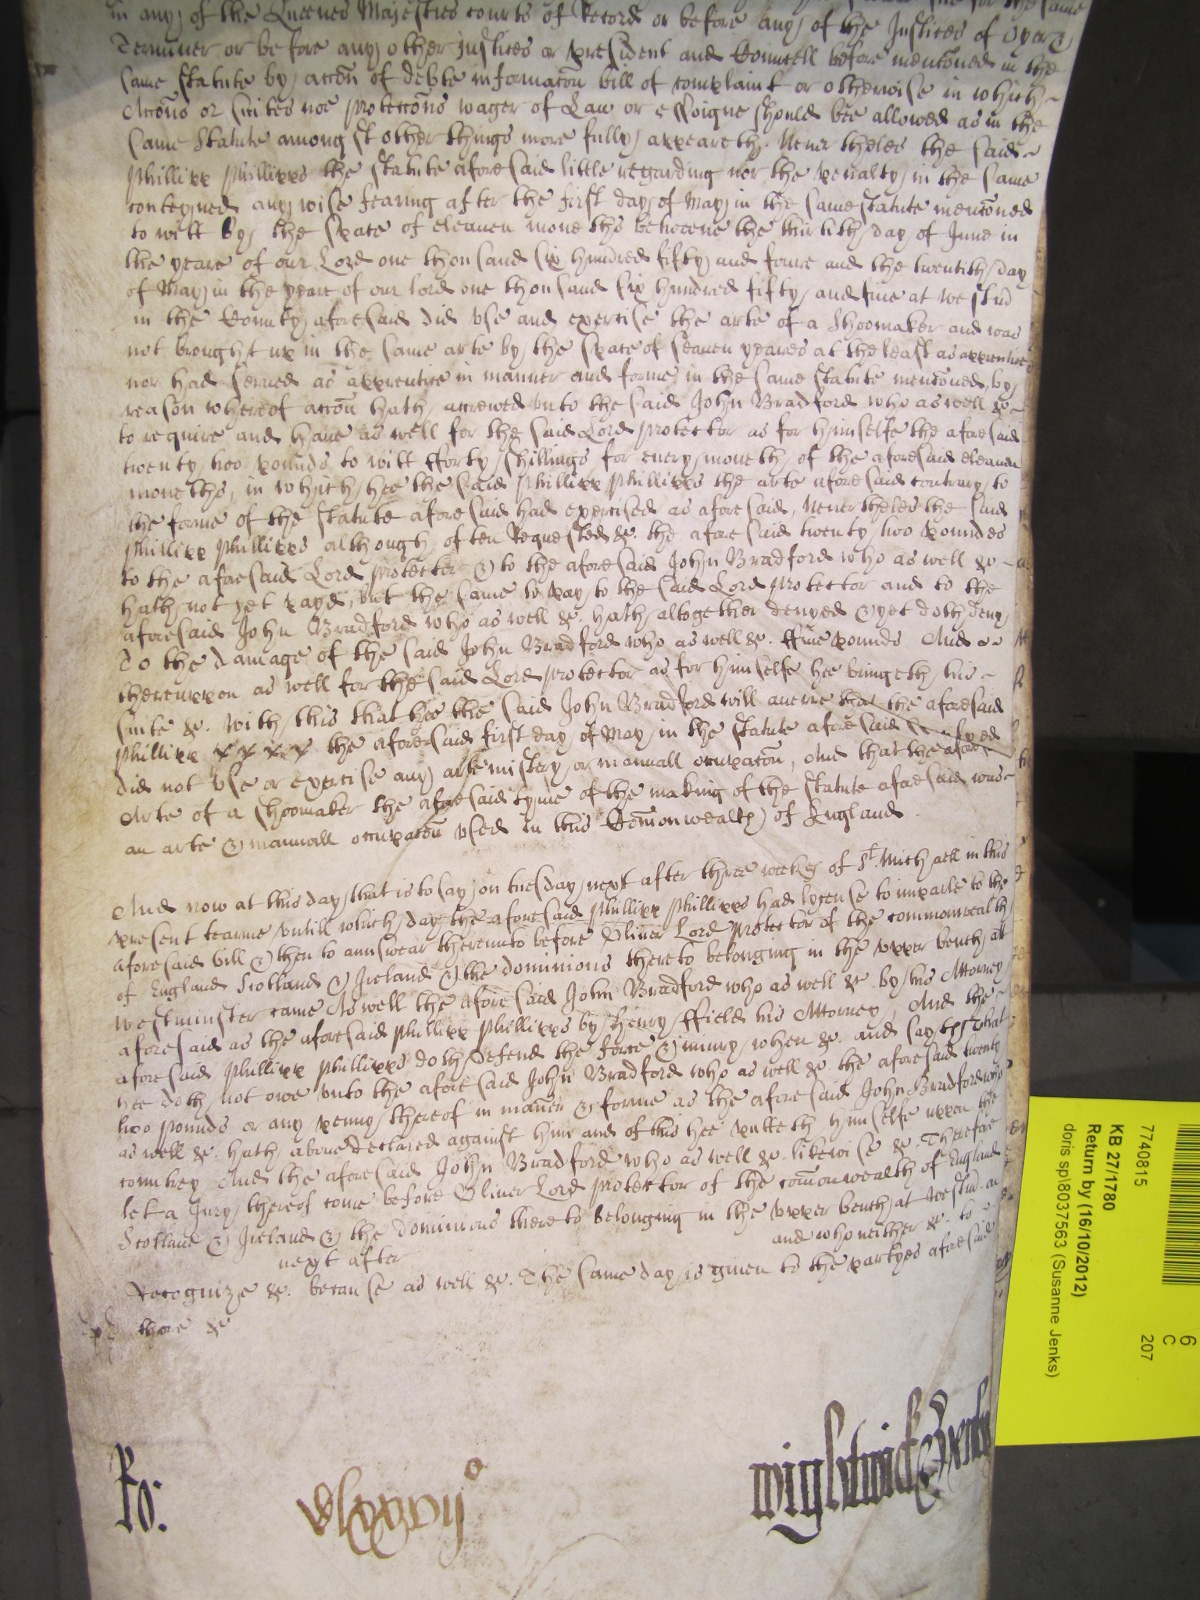 in any of the Queenes Majesties courts of Record or before any of the Justices of Oyer &
Terminer or before any other Justices or president and Councell before mentioned in the
same statute by accon of debte informacon bill of complaint or otherwise in which
Accons or suites noe proteccons wager of Law or essoigne should bee allowed as in the
same Statute amongst other things more fully appeareth. Neuertheles the said
Phillipp Phillipps the statute aforesaid little regarding nor the penalty in the same
conteyned any wise fearing after the first day of May in the same statute menconed
to witt by the space of eleauen moneths betweene the thirtith day of June in
the yeare of our Lord one thousand six hundred fifty and foure and the twentith day
of May in the yeare of our lord one thousand six hundred fifty and fiue at Westm
in the County aforesaid did vse and exercise the arte of a Shoomaker and was
not brought up in the same arte by the space of seauen yeares at the least as apprentice
nor had serued as apprentice in manner and forme in the same statute menconed, by
reason whereof accon hath accrewed vnto the said John Bradford who as well &c
to require and haue as well for the said Lord Protector as for himselfe the aforesaid
twenty two pounds to witt fforty shillings for euery moneth of the aforesaid eleauen
moneths, in which hee the said Phillipp Phillipps the arte aforesaid contrary to
the forme of the statute aforesaid had exercised as aforesaid, Neuertheles the said
Phillipp Phillipps although often Requested &c. the aforesaid twenty two pounds
to the aforesaid Lord Protector & to the aforesaid John Bradford who as well &c
hath not yet payd, but the same to pay to the said Lord Protector and to the
aforesaid John Bradford who as well &c. hath altogether denyed & yet doth deny
To the damage of the said John Bradford who as well &c. ffiue pounds And
thereuppon as well for the said Lord Protector as for himselfe hee bringeth his
suite &c. with this that hee the said John Bradford will auerre that the aforesaid
Phillipp the aforesaid first day of May in the statute aforesaid
did not vse or exercise any arte mistery or manuall occupacon, And that the aforesaid
Arte of a shoomaker the aforesaid tyme of the making of the statute aforesaid was
an arte & manuall occupacon vsed in this Comonwealth of England.
And now at this day, that is to say on tuesday next after three weekes of St. Michaell in this
present tearme vntill which day the aforesaid Phillipp Phillipps had lycense to imparle to the
aforesaid bill & then to annswear thereunto before Oliuer Lord Protector of the commonwealth
of England Scotland & Ireland & the dominions thereto belonging in the vpper bench at
Westminster came As well the aforesaid John Bradford who as well &c. by his Attorney
aforesaid as the aforesaid Phillipp Phillipps by Henry ffield his Attorney, And the
aforesaid Phillipp Phillipps doth defend the force & iniury when &c. and sayth that
hee doth not owe vnto the aforesaid John Bradford who as well &c. the aforesaid twenty
two pounds or any penny thereof in manner & forme as the aforesaid John Bradford who
as well &c. hath aboue declared against him and of this hee putteth himselfe vppon the
countrey And the aforesaid John Bradford who as well &c. likewise &c. Therefore
let a Jury thereof come before Oliuer Lord Protector of the comonwealth of England
Scotland & Ireland & the dominions thereto belonging in the vpper bench at Westm. on
next after and who neither &c. to
Recognize &c. because as well &c. The same day is giuen to the partyes aforesaid
there &c
Ro:
Wightwick
7740815
KB 27/1780
Return by (16/10/2012)
doris sp\8037563 (Susanne Jenks)
6
C
207